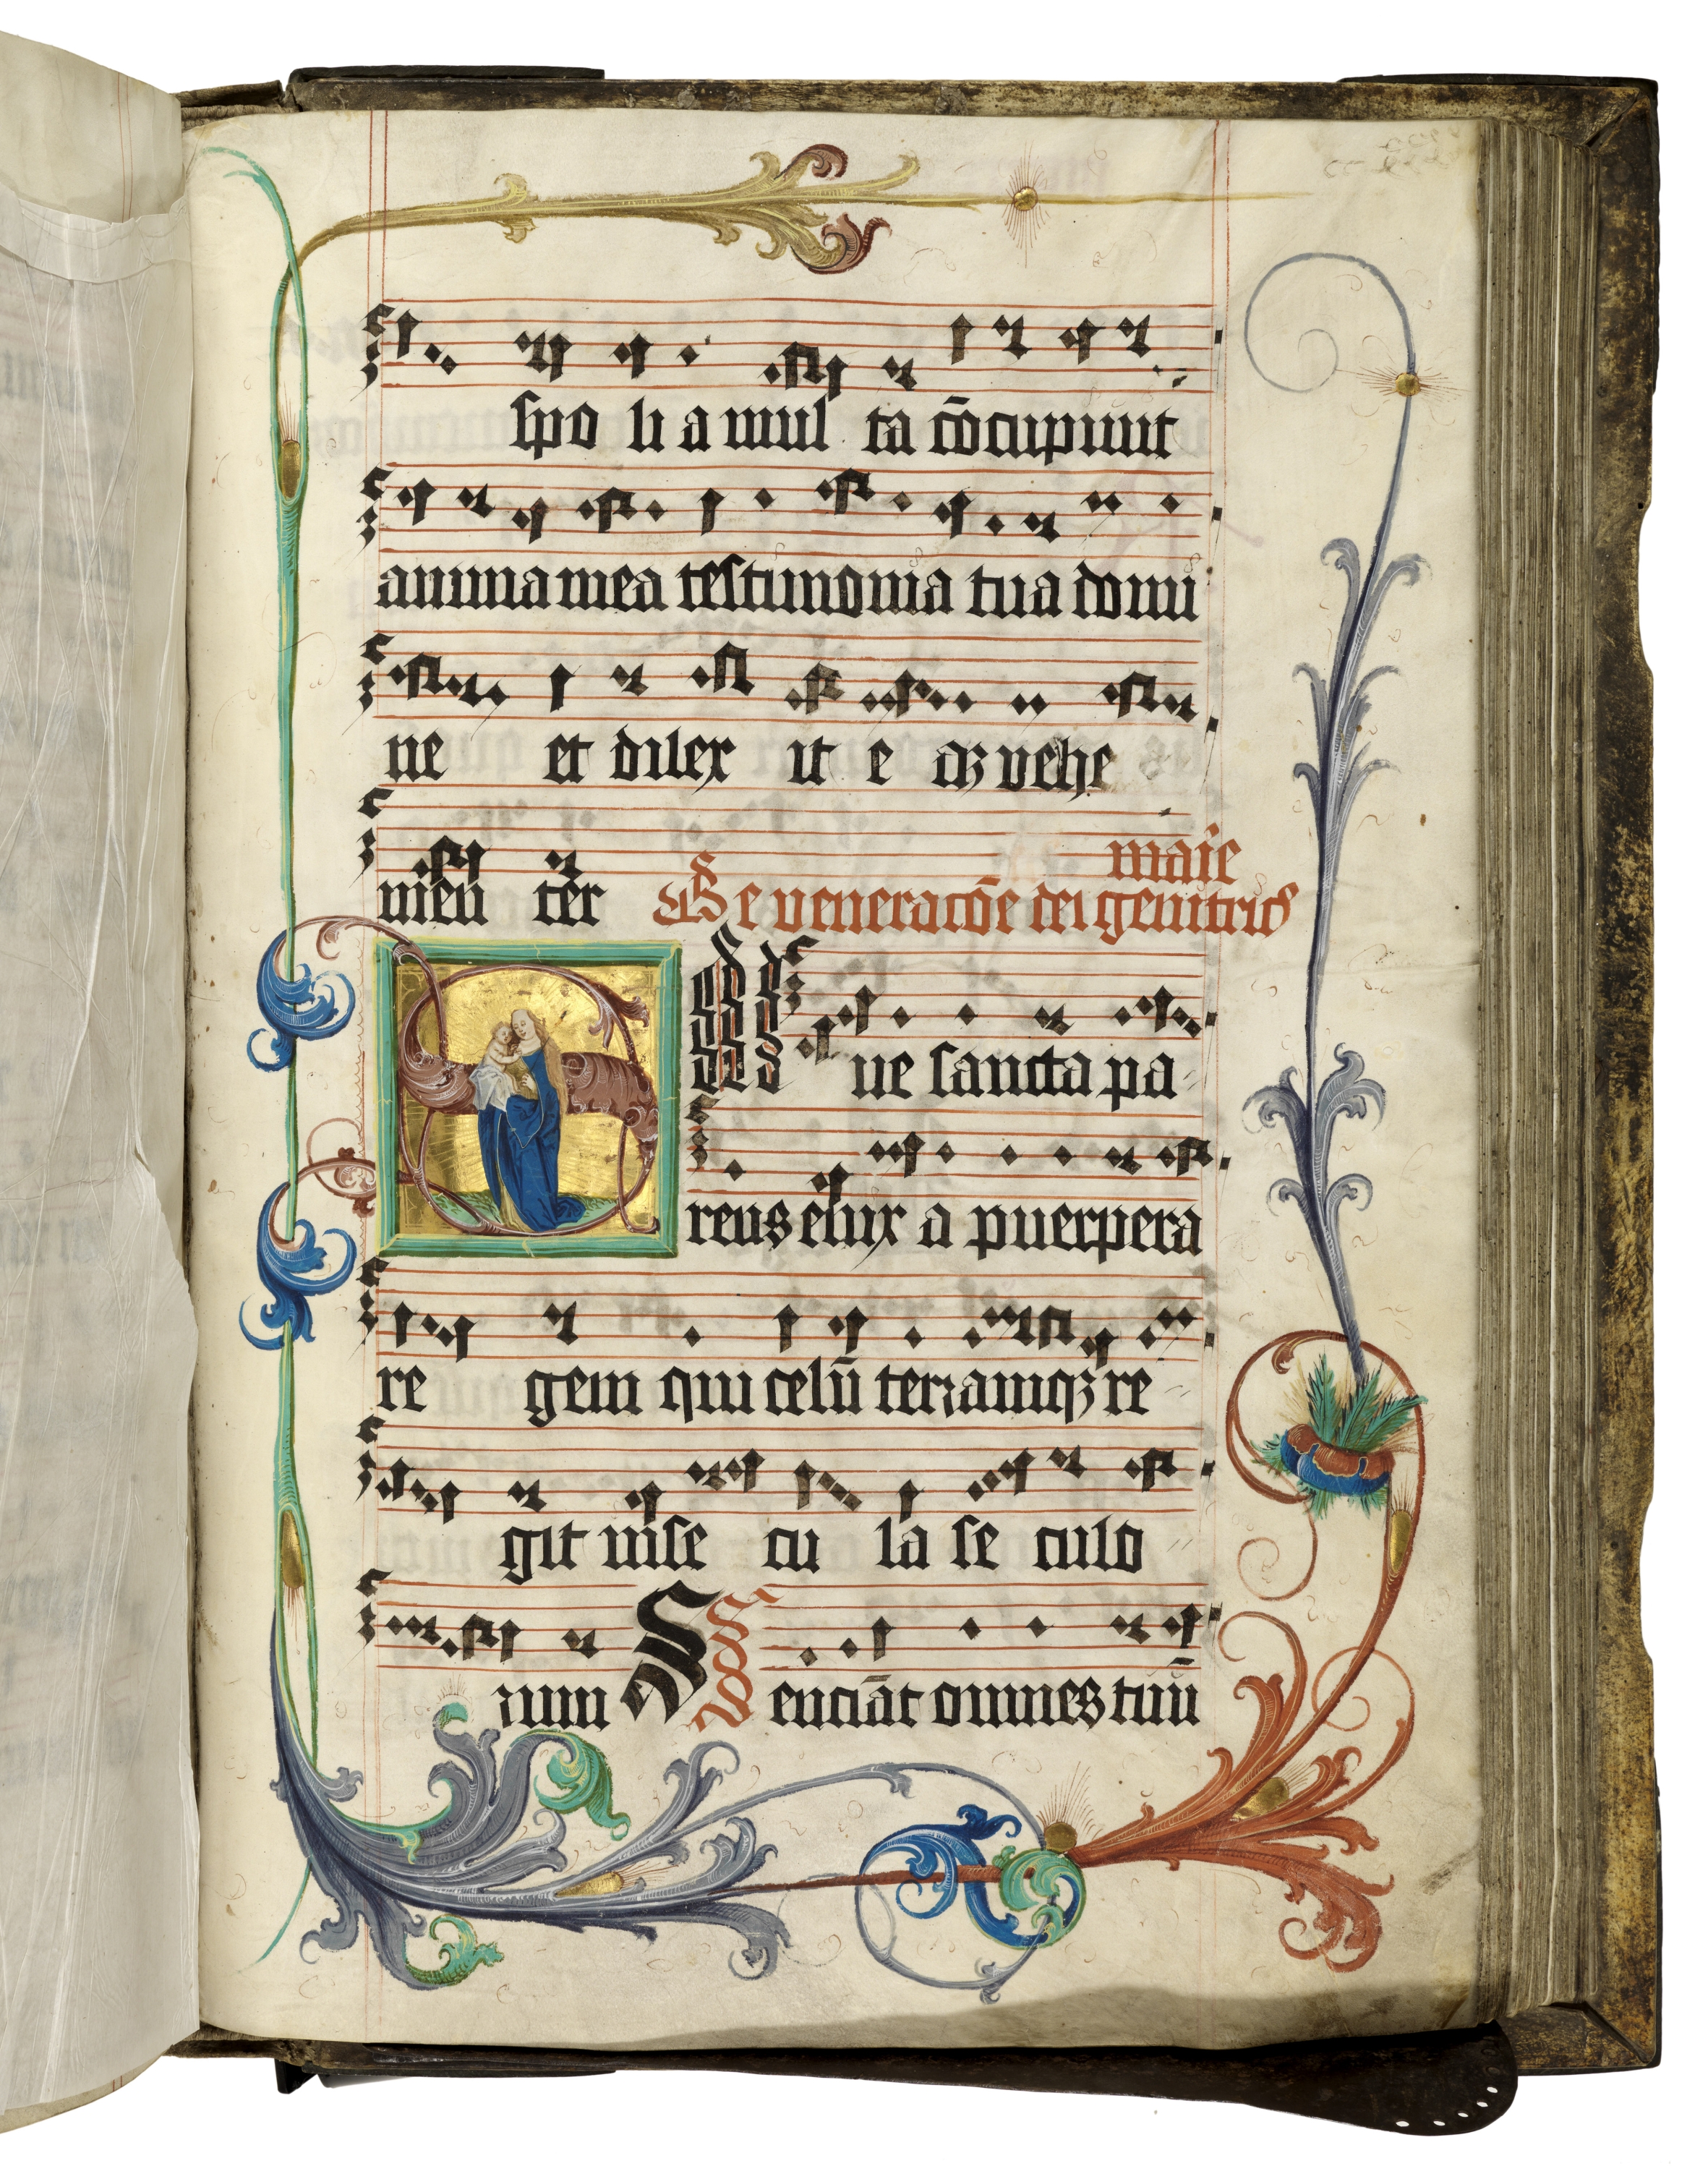 spo li a mul ta cōcupiuit
anima mea testimonia tua domi
ne et dilex it e aꝫ vehe
marie
men ter De veneracōe dei genitricis
Salue sancta pa
rens eīux a puerpera
re gem qui celū terramqꝫ re
git inse cu la se culo
rum Senciāt omnes tuū